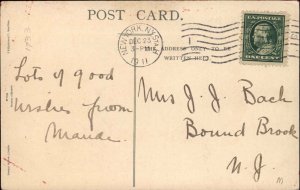 POST CARD.
NEW YORK, N.Y.
DEC 23
3-PM
1911
U.S. POSTAGE
ONE CENT
ADDRESS ONLY TO BE
WRITTEN HERE
Lots of good
wishes from
Maude.
Mrs J. J. Bach
Bound Brook
N. J.